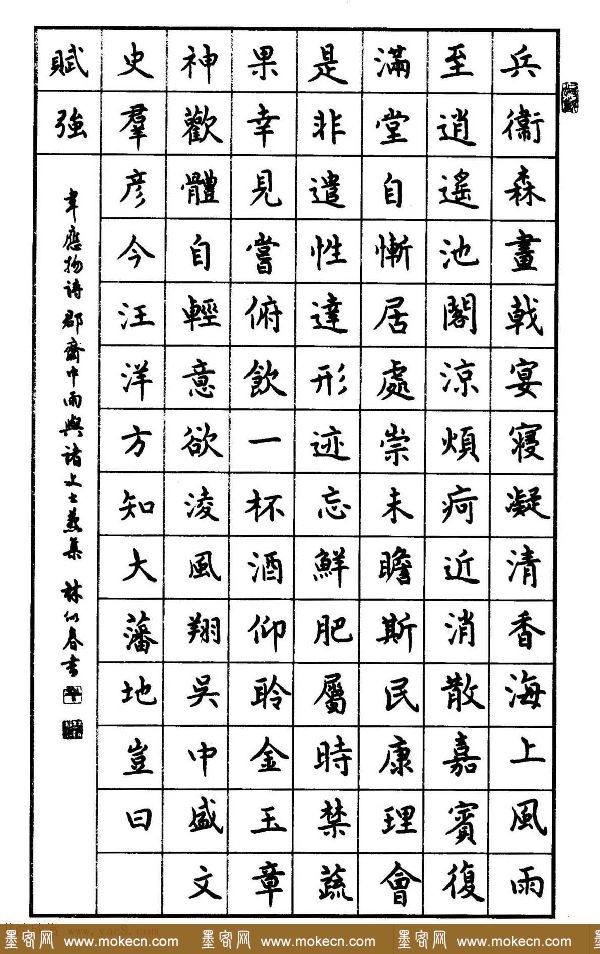 兵衞森畫戟宴寢凝清香海上風雨
至逍遙池閣涼煩疴近消散嘉賓復
滿堂自慚居處崇未瞻斯民康理會
是非遣性達形迹忘鮮肥屬時禁蔬
果幸見嘗俯飲一杯酒仰聆金玉章
神歡體自輕意欲淩風翔吳中盛文
史羣彥今汪洋方知大藩地豈曰
賦強
韋應物詩 郡齋中雨與諸文士燕集 林似春書
墨客网 www.mokecn.com 墨客网 www.mokecn.com 墨客网 www.mokecn.com